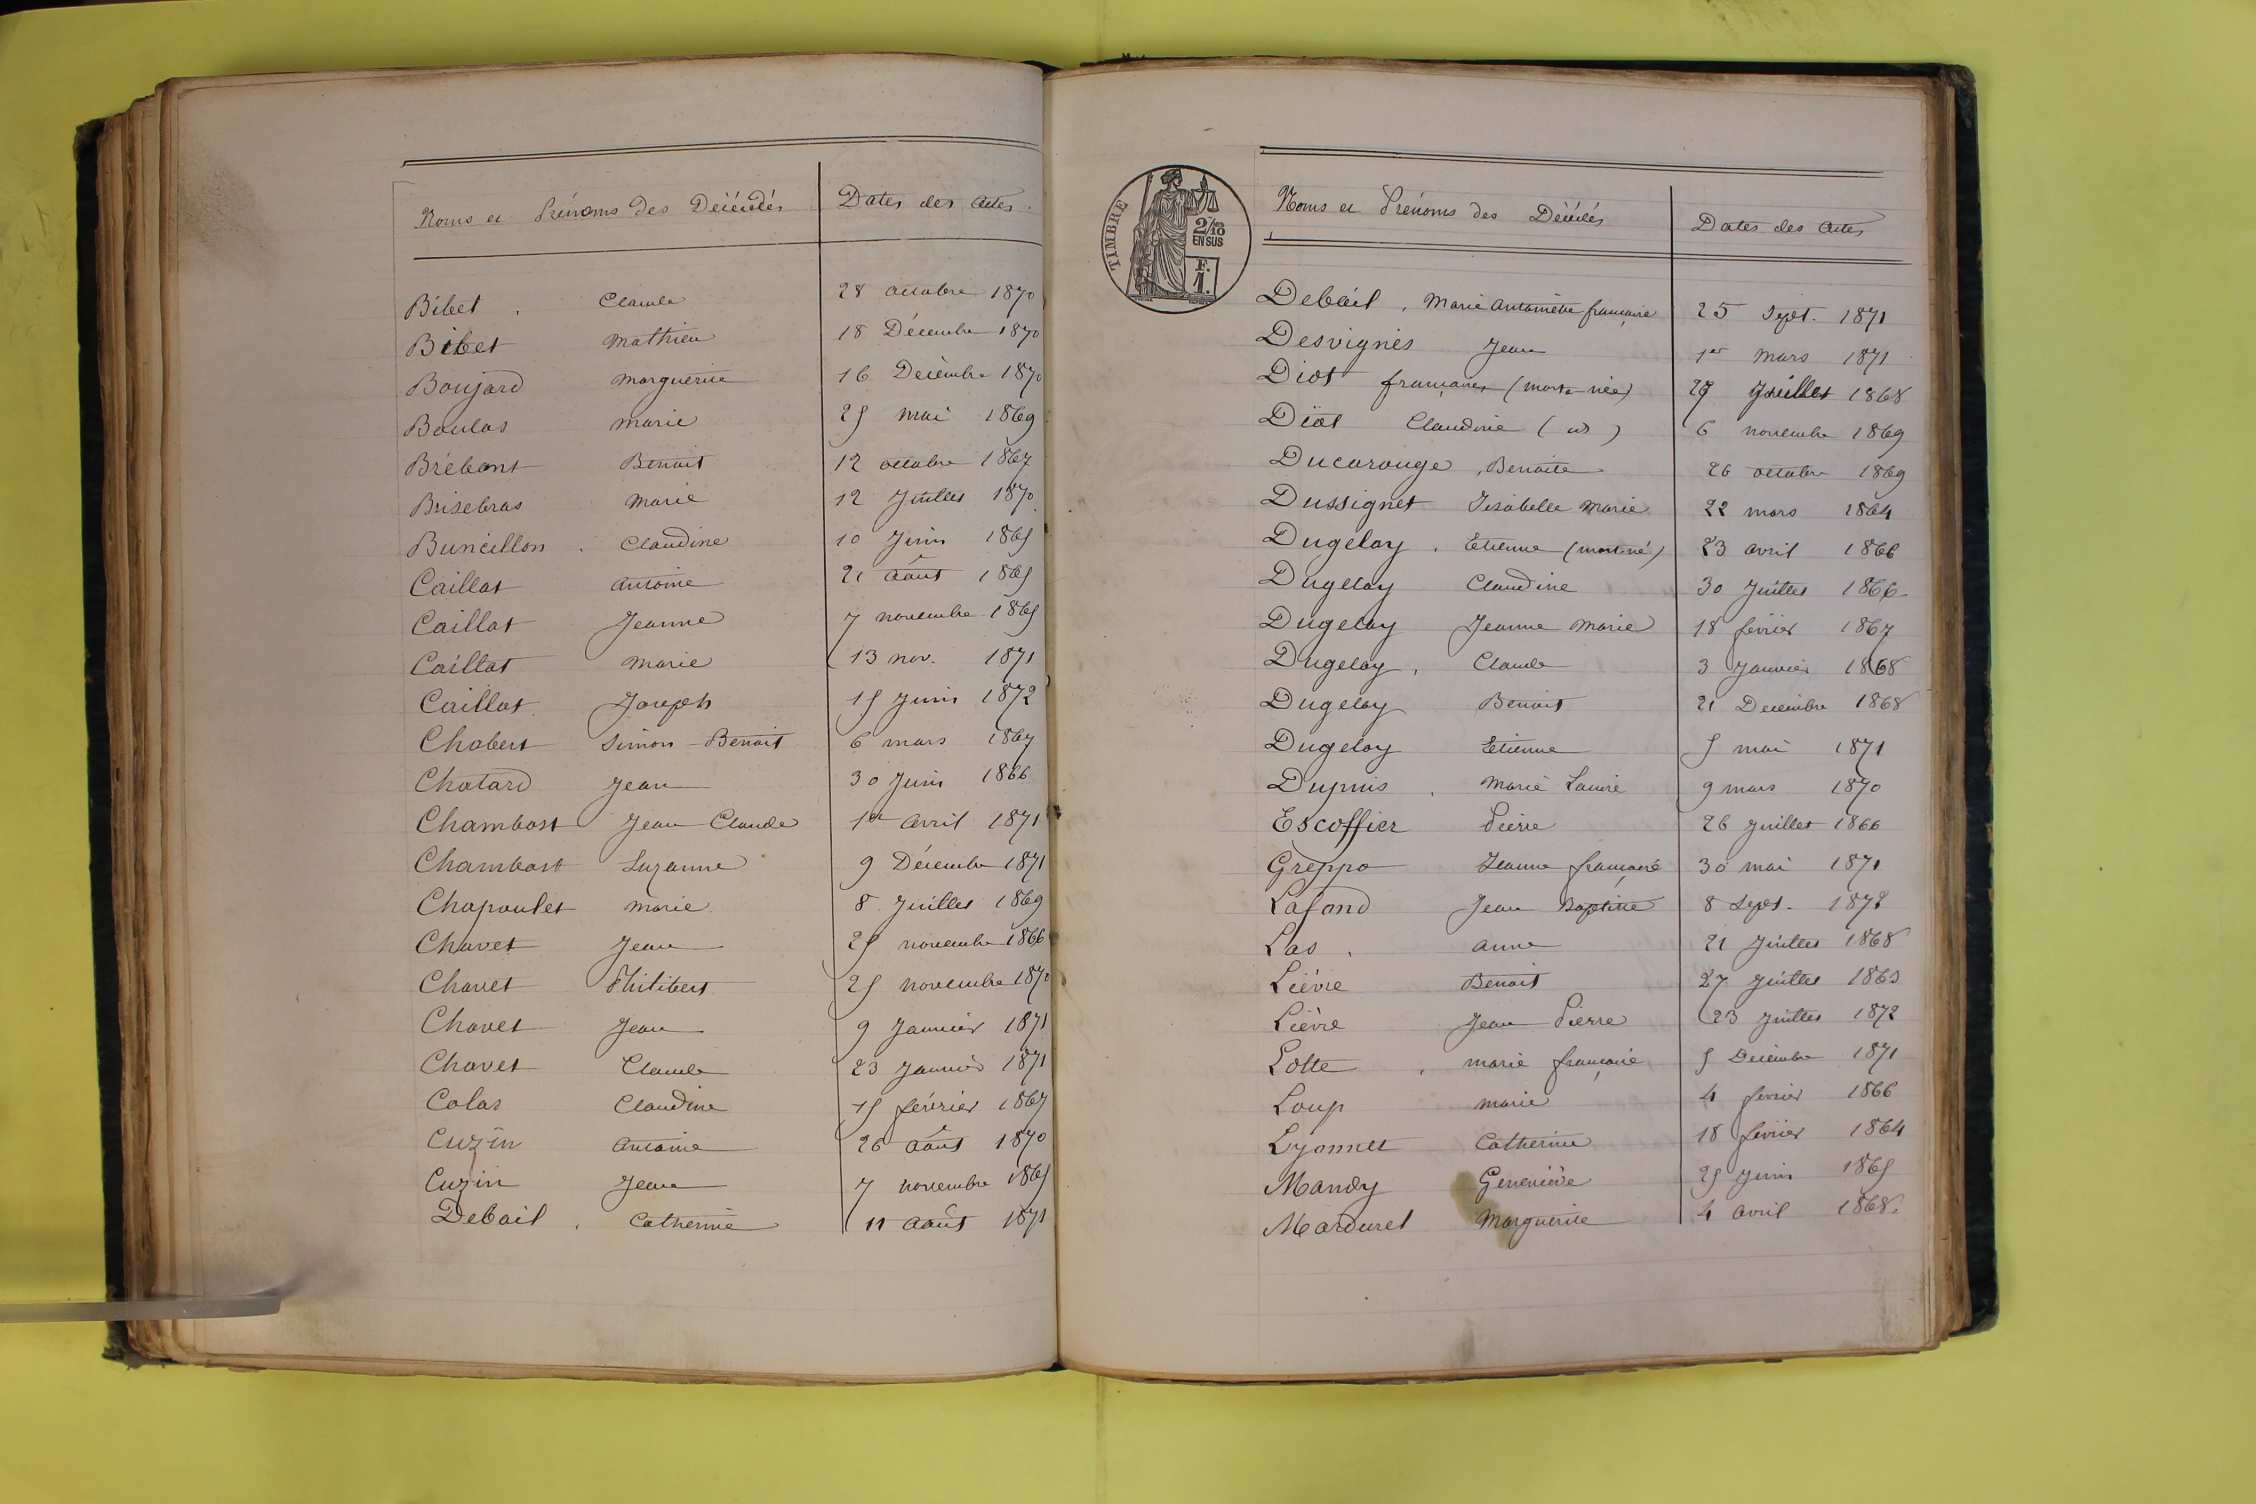 Noms et Prénoms des Décédés Dates des Actes.
Bibet Claude 28 octobre 1870
Bibet Mathieu 18 Décembre 1870
Boujard Marguerite 16 Décembre 1870
Boulas Marie 25 mai 1869
Brébant Benoit 12 octobre 1867
Brisebras Marie 12 Juillet 1870
Buncillon Claudine 10 Juin 1865
Caillat Antoine 21 août 1865
Caillat Jeanne 7 novembre 1865
Caillat Marie 13 nov. 1871
Caillat Joseph 15 Juin 1872
Chabert Simon-Benoit 6 mars 1867
Chatard Jean 30 Juin 1866
Chambost Jean Claude 1er avril 1871
Chambost Suzanne 9 Décembre 1871
Chapoulet Marie 8 Juillet 1869
Chavet Jean 25 novembre 1866
Chavet Philibert 25 novembre 1870
Chavet Jean 9 Janvier 1871
Chavet Claude 23 Janvier 1871
Colas Claudine 15 février 1867
Cuzin Antoine 26 août 1870
Cuzin Jean 7 novembre 1865
Debail Catherine 11 août 1871
TIMBRE
2/10
EN SUS
F.
1.
Noms et Prénoms des Décédés Dates des Actes
Debail, Marie Antoinette françoise 25 Sept. 1871
Desvignes Jean 1er Mars 1871
Diot françoise (mort-née) Juillet 1868
Diot Claudine (id) 6 novembre 1869
Ducarouge, Benoite 26 octobre 1869
Dussignet Isabelle Marie 22 mars 1864
Dugelay, Etienne (mort-né) 23 avril 1866
Dugelay Claudine 30 Juillet 1866
Dugelay Jeanne Marie 18 février 1867
Dugelay, Claude 3 Janvier 1868
Dugelay Benoit 21 Décembre 1868
Dugelay Etienne 5 mai 1871
Dupuis, Marie Louise 9 mars 1870
Escoffier Pierre 26 Juillet 1866
Greppo Jeanne françoise 30 mai 1871
Lafond Jean Baptiste 8 Sept. 1872
Las, Anne 21 Juillet 1868
Lièvre Benoit 27 Juillet 1863
Lièvre Jean Pierre 23 Juillet 1872
Lotte, Marie françoise 5 Décembre 1871
Loup Marie 4 février 1866
Lyonnet Catherine 18 février 1864
Mandy Geneviève 25 Juin 1865
Marduel Marguerite 4 avril 1868.